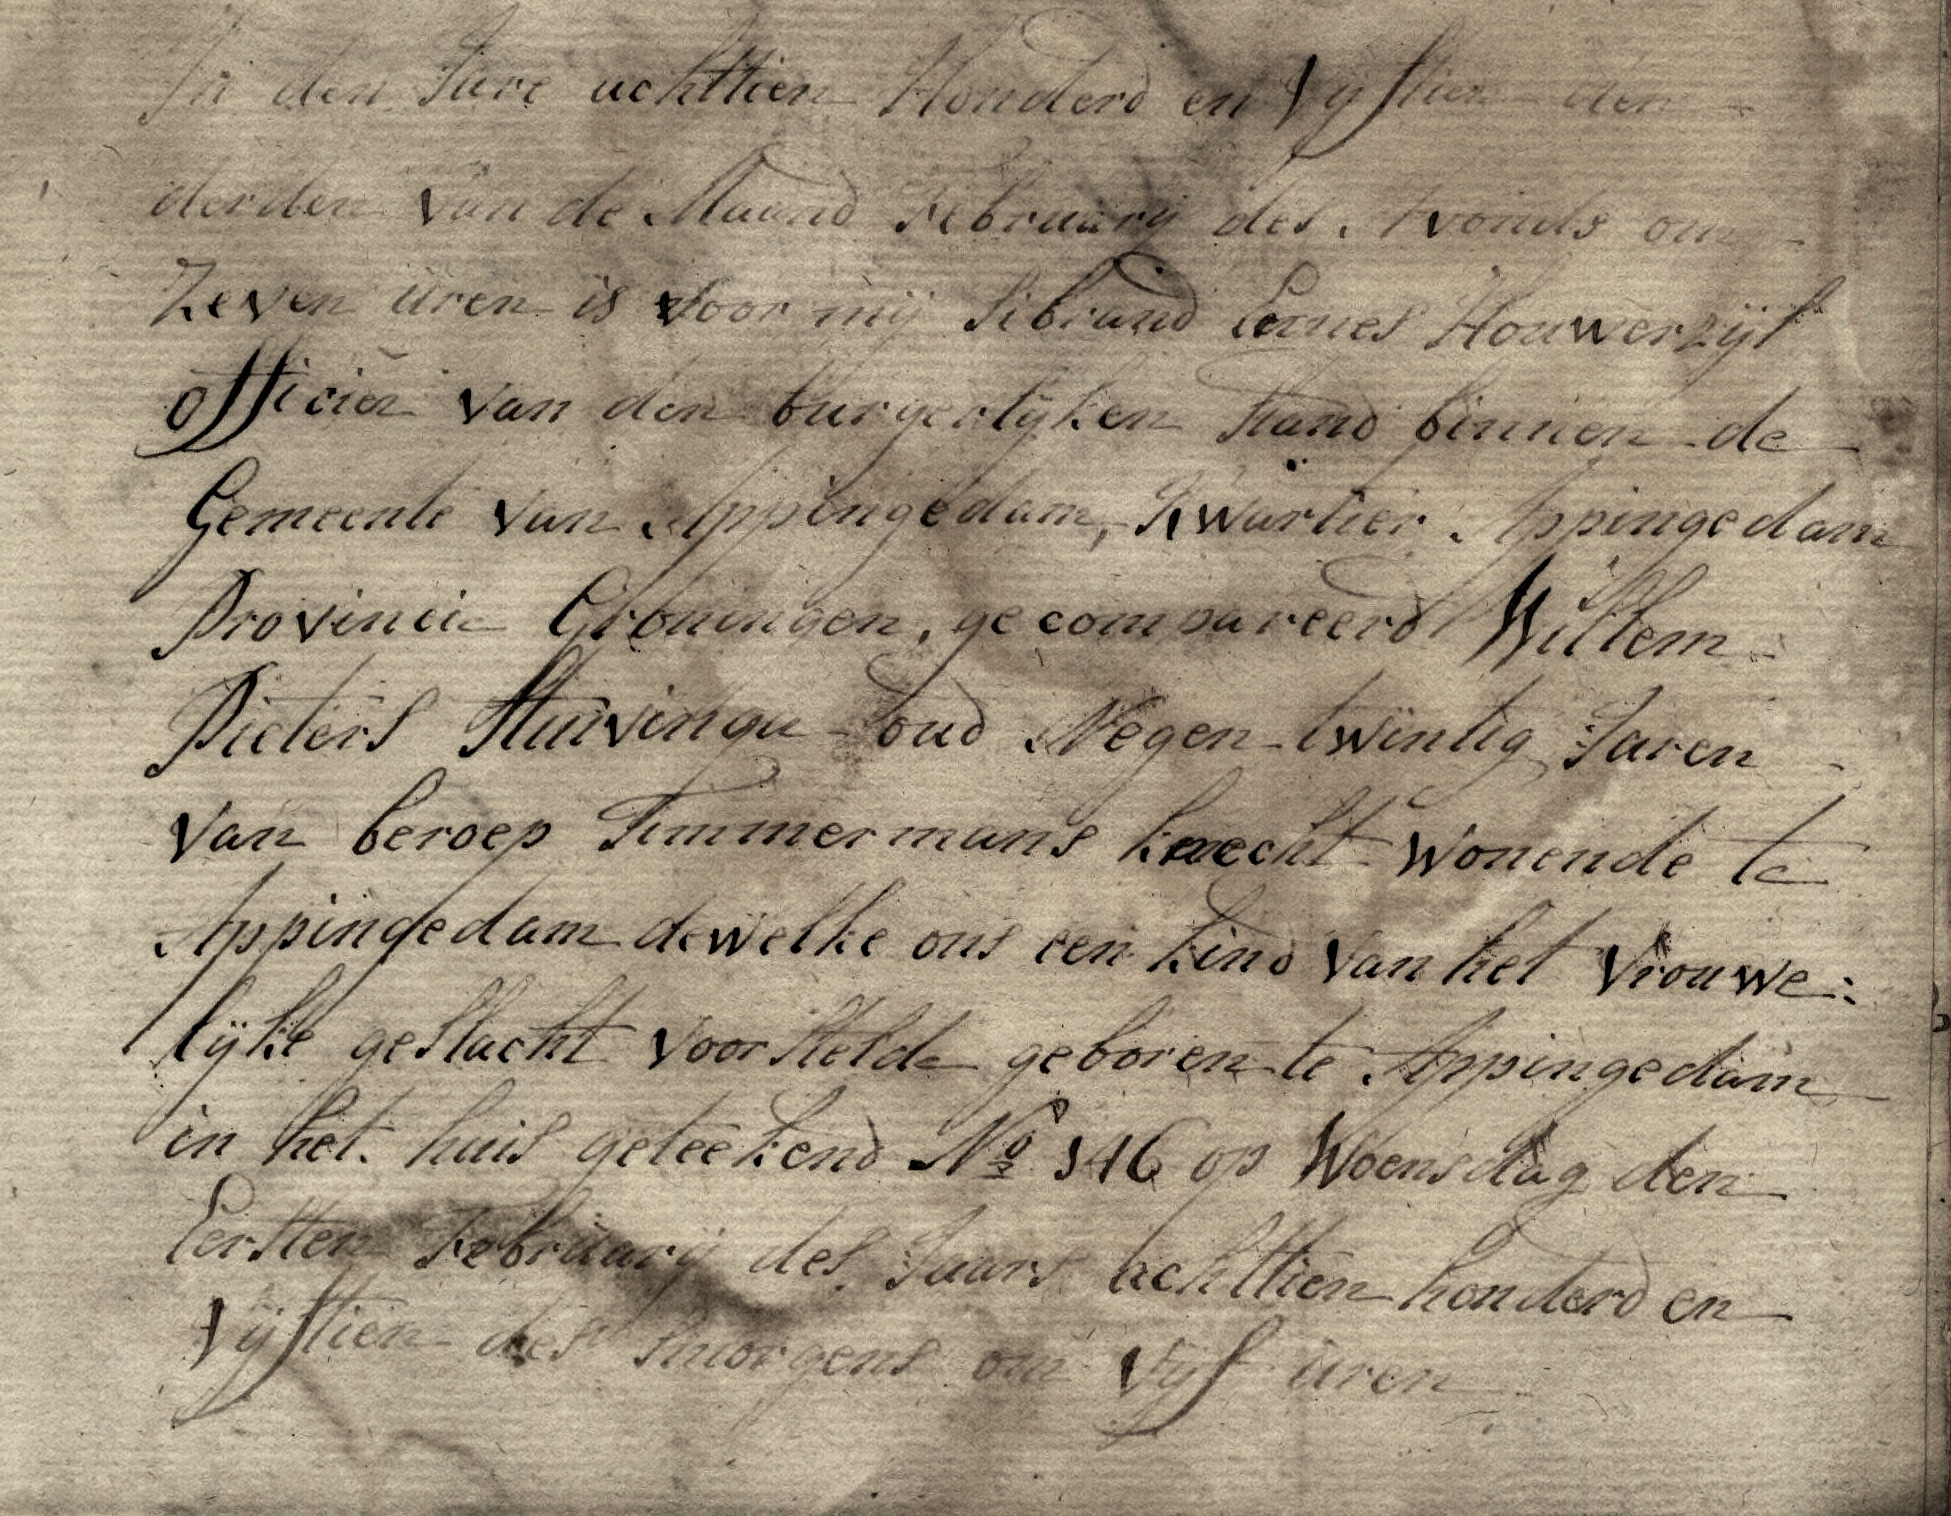 In den Jare achttien Honderd en Vyftien den
derden van de Maand February des Avonds om
Zeven uren is voor mij Sibrand Eernes Houwerzijl
officier van den burgerlyken stand binnen de
Gemeente van Appingedam, Kwartier Appingedam
Provincie Groningen, gecompareerd Willem
Pieters Stuivinga oud Negen twintig Jaren
van beroep Timmermans knecht wonende te
Appingedam dewelke ons een kind van het vrouwe:
lyke geslacht voorstelde geboren te Appingedam
in het huis geteekend No 146 op Woensdag den
Eersten February des Jaars achttien honderd en
Vyftien des smorgens om vyf uren